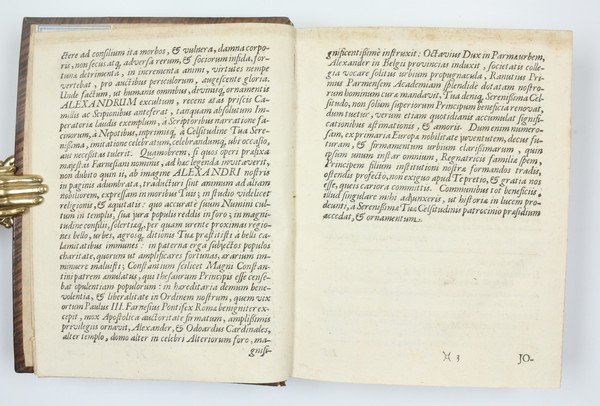 ctere ad consilium ita morbos, & vulnera, damna corpo-
ris, non secus atq, adversa rerum, & sociorum infida, for-
tuna detrimenta, in incrementa animi, virtutes nempe
vertebat, pro auctibus periculorum, augescente gloria.
Unde factum, ut humanis omnibus, divinisq, ornamentis
ALEXANDRUM excultum, recens ætas priscis Ca-
millis ac Scipionibus anteferat, tanquam absolutum Im-
peratoria laudis exemplum, à Scriptoribus narratione fa-
cinorum, à Nepotibus, imprimisq, à Celsitudine Tua Sere-
nissima, imitatione celebratum, celebrandumq, ubi occasio,
aut necessitas tulerit. Quamobrem, si quos operi præfixa
majestas Farnesiani nominis, ad hæc legenda invitaverit,
non dubito quin ii, ab imagine ALEXANDRI nostris
in paginis adumbrata, traducturi sint animum ad aliam
nobiliorem, expressam in moribus Tuis; in studio videlicet
religionis, & æquitatis: quo accuratè suum Numini cul-
tum in templis, sua jura populis reddis in foro; in magni-
tudine consilii, solertiæq, per quam urente proximas regio-
nes bello, urbes, agrosq, ditionis Tuæ præstitisti à belli ca-
lamitatibus immunes: in paterna erga subjectos populos
charitate, quorum ut amplificares fortunas, ararium im-
minuere maluisti; Constantium scilicet Magni Constan-
tini patrem æmulatus, qui thesaurum Principis esse cense-
bat opulentiam populorum: in hæreditaria demum bene-
volentia, & liberalitate in Ordinem nostrum, quem vix
ortum Paulus III. Farnesius Pontifex Roma benignè ex-
cepit, mox Apostolica auctoritate firmatum, amplissimis
privilegiis ornavit, Alexander, & Odoardus Cardinales,
alter templo, domo alter in celebri Alteriorum foro, ma-
gnifi-
gnificentissimè instruxit: Octavius Dux in Parmam urbem,
Alexander in Belgii provincias induxit, societatis colle-
gia vocare solitus urbium propugnacula, Ranutius Pri-
mus Parmensem Academiam splendidè dotatam nostro-
rum hominum curæ mandavit. Tua denq, Serenissima Cel-
situdo, non solùm superiorum Principum beneficia renovat,
dum tuetur, verùm etiam quotidianis accumulat signifi-
cationibus æstimationis, & amoris. Dum enim numero-
sam, ex primaria Europæ nobilitate juventutem, decus fu-
turam, & firmamentum urbium clarissimarum, quin
ipsum unum instar omnium, Regnatricis familiæ spem,
Principem filium institutioni nostræ formandos tradis,
ostendis profectò, non exiguo apud Te pretio, & gratia nos
esse, queis cariora committis. Communibus tot beneficiis,
illud singulare mihi adjunxeris, ut historia in lucem pro-
deunti, à Serenissimæ Tuæ Celsitudinis patrocinio præsidium
accedat, & ornamentum.
3
JO-